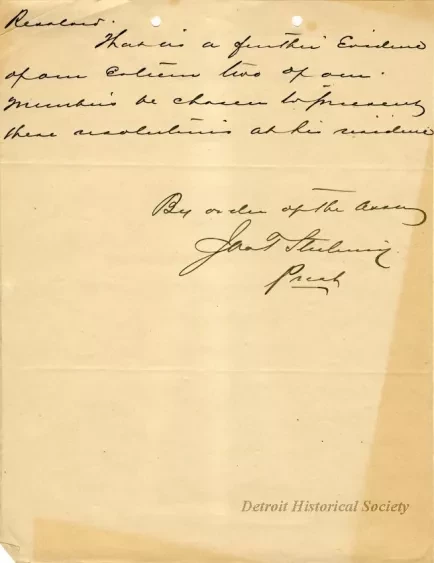 Resolved.
That as a further Evidence
of our Esteem two of our
Members be chosen to present
these resolutions at his residence
By order of the Assn
Pres't
Detroit Historical Society